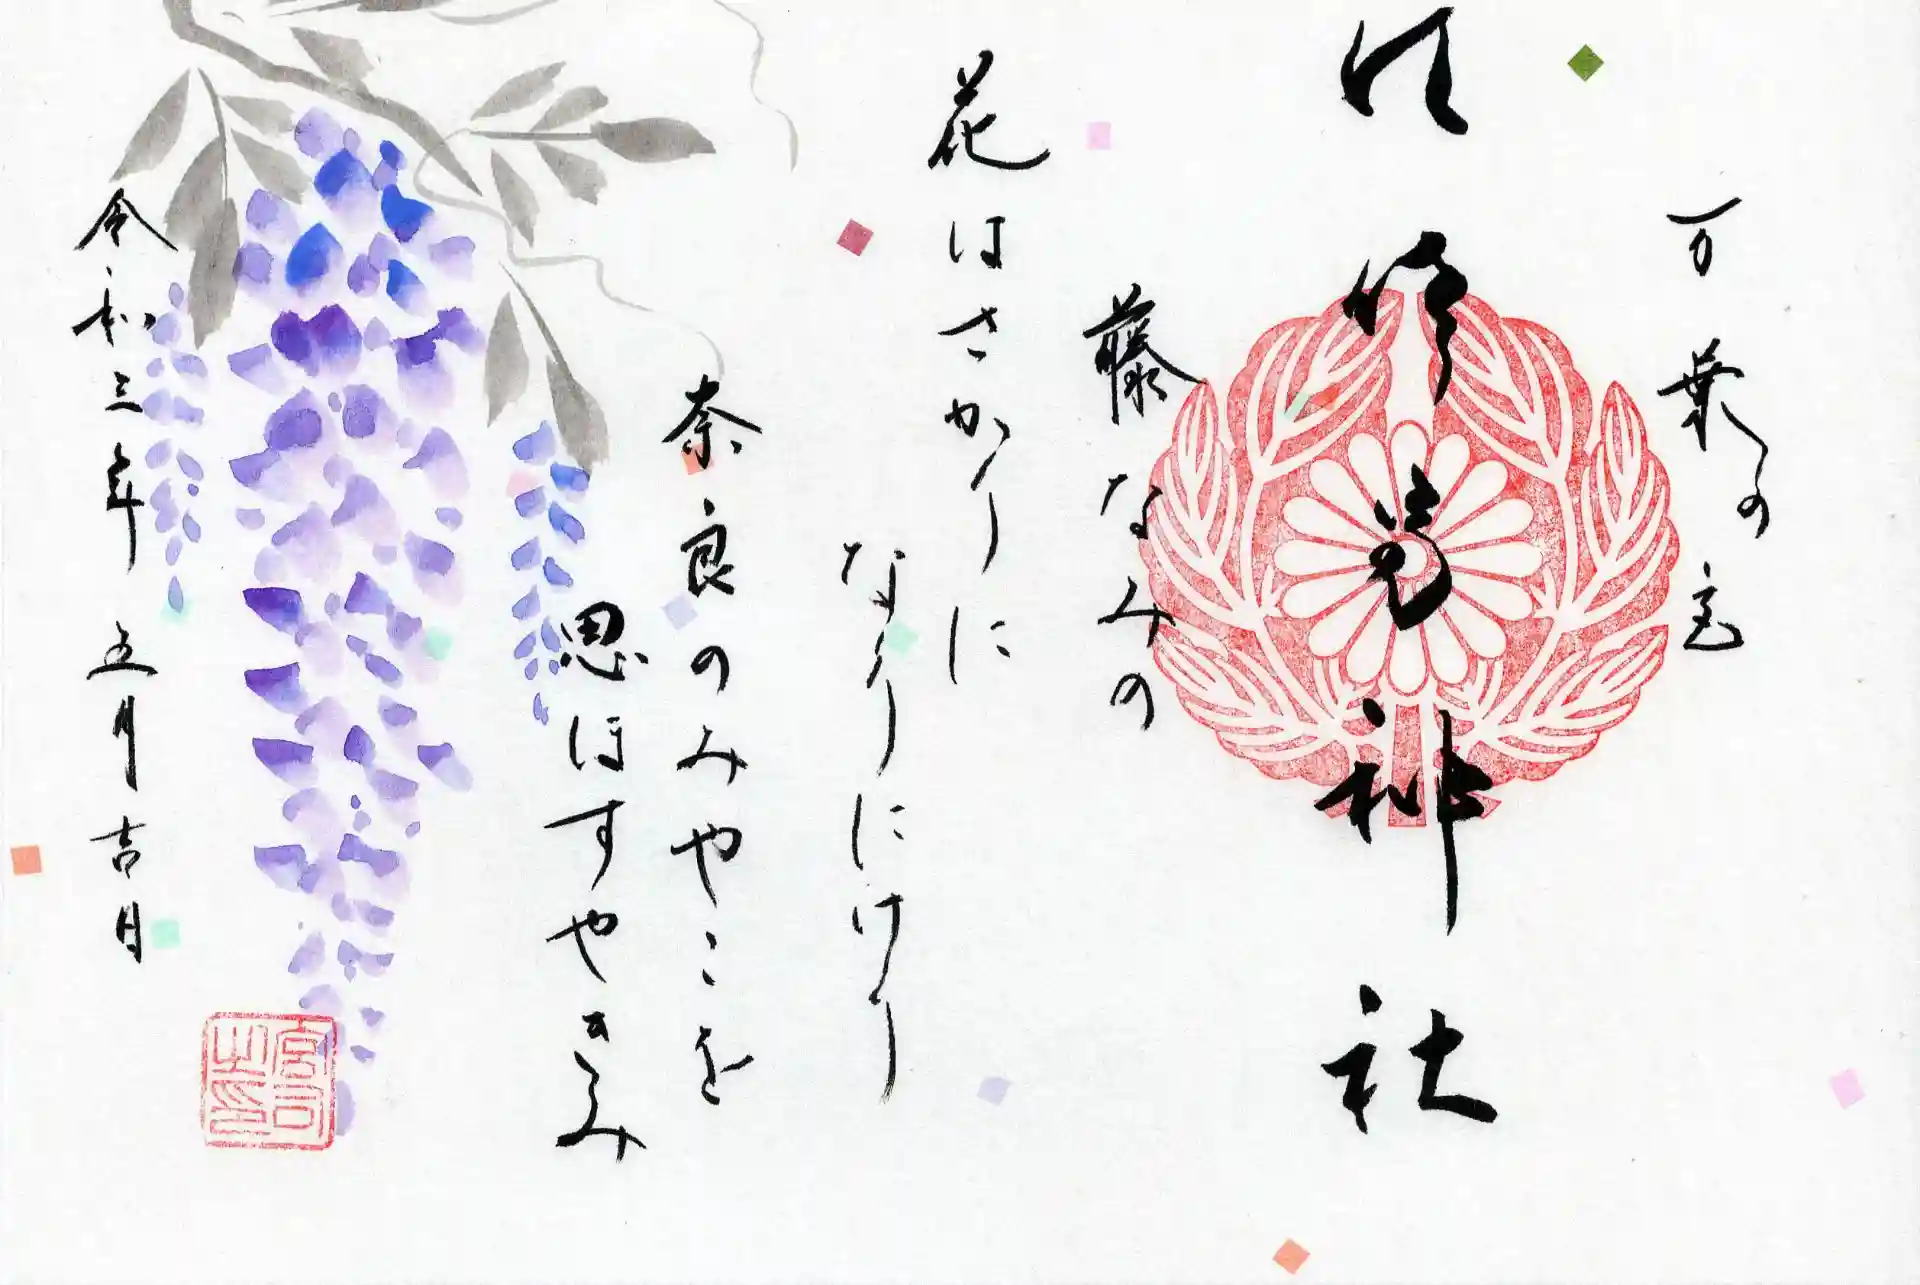 万葉の
神社
藤なみの
花はさかりに
なりにけり
奈良のみやこを
思ほすやきみ
令和三年 五月吉日
宮司之印